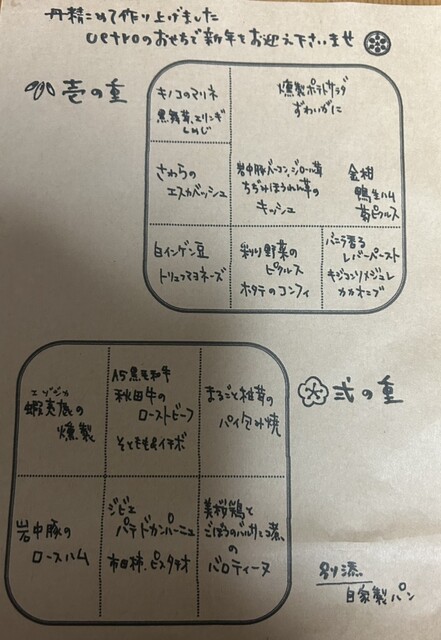 丹精こめて作り上げました
uetroのおせちで新年をお迎え下さいませ
壱の重
キノコのマリネ
黒舞茸、エリンギ
しめじ
燻製ポテトサラダ
ずわいがに
さわらの
エスカベッシュ
岩中豚ベーコン、ジロール茸
ちぢみほうれん草の
キッシュ
金柑
鴨生ハム
菊ピクルス
白インゲン豆
トリュフマヨネーズ
彩り野菜の
ピクルス
ホタテのコンフィ
バニラ香る
レバーペースト
キジコンソメジュレ
カカオニブ
弐の重
エゾジカ
蝦夷鹿の
燻製
A5黒毛和牛
秋田牛の
ローストビーフ
そともも&イチボ
まるごと椎茸の
パイ包み焼
岩中豚の
ロースハム
ジビエ
パテドカンパーニュ
市田柿、ピスタチオ
美桜鶏と
ごぼうのバルサミコ煮
の
バロティーヌ
別添
自家製パン